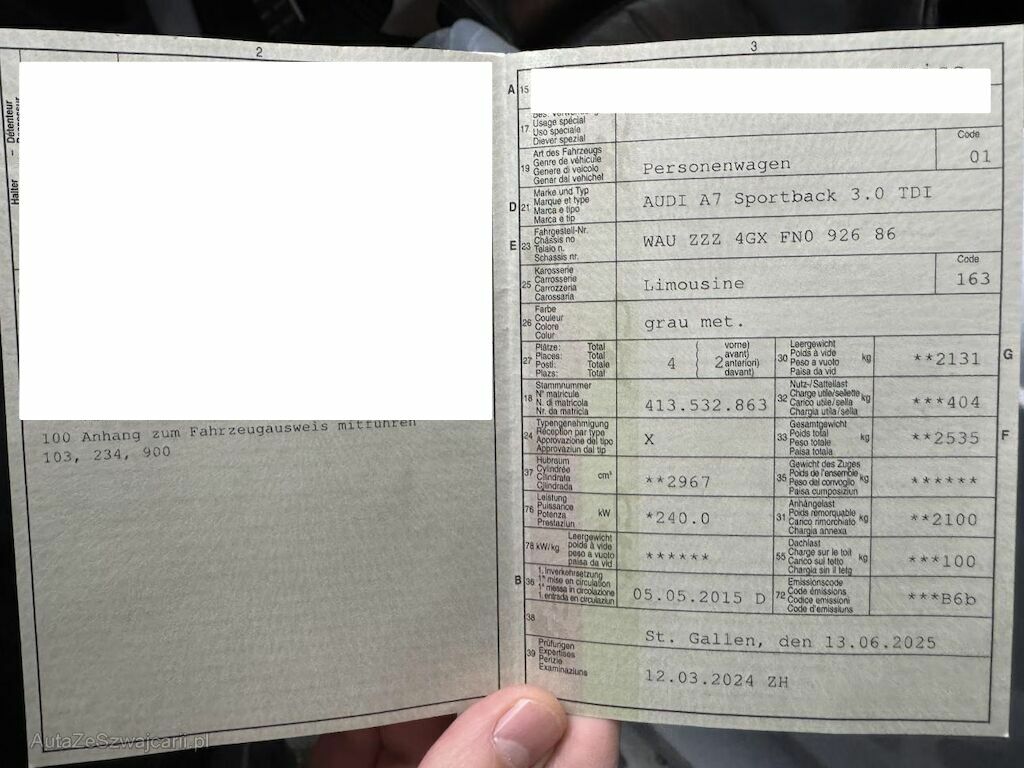 2
Halter - Détenteur
100 Anhang zum Fahrzeugausweis mitführen
103, 234, 900
3
A 15
17 Usage spécial
Uso speciale
Diever spezial
19 Art des Fahrzeugs
Genre de véhicule
Genere di veicolo
Gener dal vehichel
Personenwagen
Code
01
D 21 Marke und Typ
Marque et type
Marca e tipo
Marca e tip
AUDI A7 Sportback 3.0 TDI
E 23 Fahrgestell-Nr.
Châssis no
Telaio n.
Schassis nr.
WAU ZZZ 4GX FN0 926 86
25 Karosserie
Carrosserie
Carrozzeria
Carossaria
Limousine
Code
163
26 Farbe
Couleur
Colore
Colur
grau met.
27 Plätze: Total
Places: Total
Posti: Totale
Plazs: Total
4 ( 2 vorne)
avant)
anteriori)
davant)
30 Leergewicht
Poids à vide
Peso a vuoto
Paisa da vid
kg
**2131
G
18 Stammnummer
N° matricule
N. di matricola
Nr. da matricla
413.532.863
32 Nutz-/Sattellast
Charge utile/sellette
Carico utile/sella
Chargia utila/sella
kg
***404
24 Typengenehmigung
Réception par type
Approvazione del tipo
Approvaziun dal tip
X
33 Gesamtgewicht
Poids total
Peso totale
Paisa totala
kg
**2535
F
37 Hubraum
Cylindrée
Cilindrata
Cilindrada
cm³
**2967
35 Gewicht des Zuges
Poids de l'ensemble
Peso del convoglio
Paisa cumposiziun
kg
******
76 Leistung
Puissance
Potenza
Prestaziun
kW
*240.0
31 Anhängelast
Poids remorquable
Carico rimorchiato
Chargia annexa
kg
**2100
78 kW/kg Leergewicht
poids à vide
peso a vuoto
paisa da vid
******
55 Dachlast
Charge sur le toit
Carico sul tetto
Chargia sin il tetg
kg
***100
B 36 1. Inverkehrsetzung
1re mise en circulation
1a messa in circolazione
1. entrada en circulaziun
05.05.2015 D
72 Emissionscode
Code émissions
Codice emissioni
Code d'emissiuns
***B6b
38
St. Gallen, den 13.06.2025
39 Prüfungen
Expertises
Perizie
Examinaziuns
12.03.2024 ZH
AutaZeSzwajcarii.pl